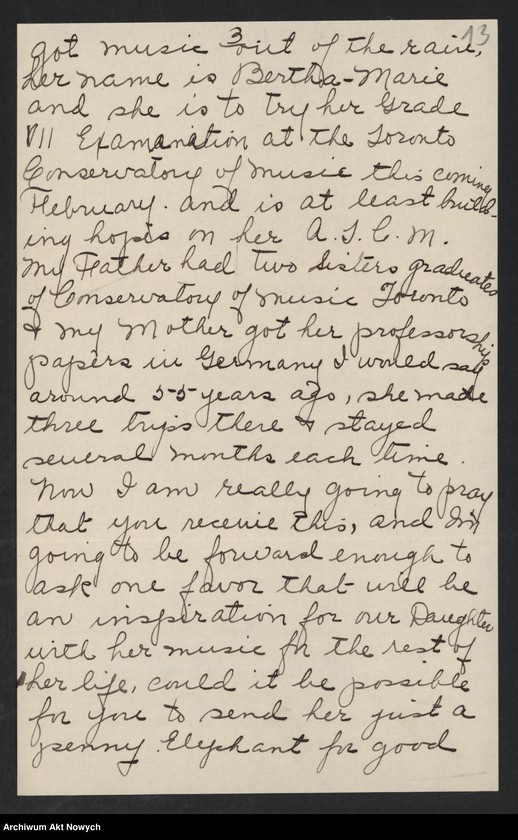 3
13
got music out of the rain,
her name is Bertha-Marie
and she is to try her Grade
VII Examanation at the Toronto
Conservatory of music this coming
February. and is at least build-
ing hopes on her A. T. C. M.
My Father had two Sisters graduates
of Conservatory of music Toronto
& my Mother got her professorship
papers in Germany I would say
around 55 years ago, she made
three trips there & stayed
several months each time.
Now I am really going to pray
that you receive this, and I'm
going to be forward enough to
ask one favor that will be
an inspiration for our Daughter
with her music for the rest of
her life, could it be possible
for you to send her just a
penny Elephant for good
Archiwum Akt Nowych